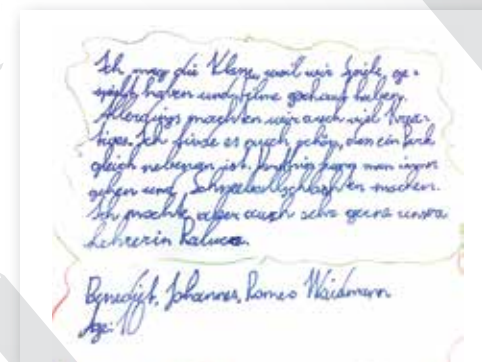 Ich mag die Klasse, weil wir Spiele ge-
spielt haben und Filme geschaut haben.
Allerdings machten wir auch viel Krea-
tives. Ich finde es auch schön, dass ein Park
gleich nebenan ist. kann man immer
gehen und Schneeballschlachten machen.
Ich mochte aber auch sehr gerne unsere
Lehrerin Raluca.
Benedikt, Johannes, Romeo Waidmann
Age: 10